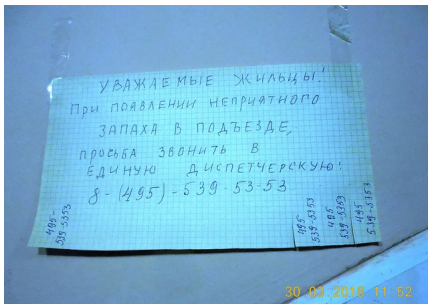 УВАЖАЕМЫЕ ЖИЛЬЦЫ!
При ПОЯВЛЕНИИ НЕПРИЯТНОГО
ЗАПАХА В ПОДЪЕЗДЕ,
ПРОСЬБА ЗВОНИТЬ В
ЕДИНУЮ ДИСПЕТЧЕРСКУЮ!
8-(495)-539-53-53
495-
539-5353
495
539-5353
495
539-5353
495
539-5353
30 03 2018 11 52